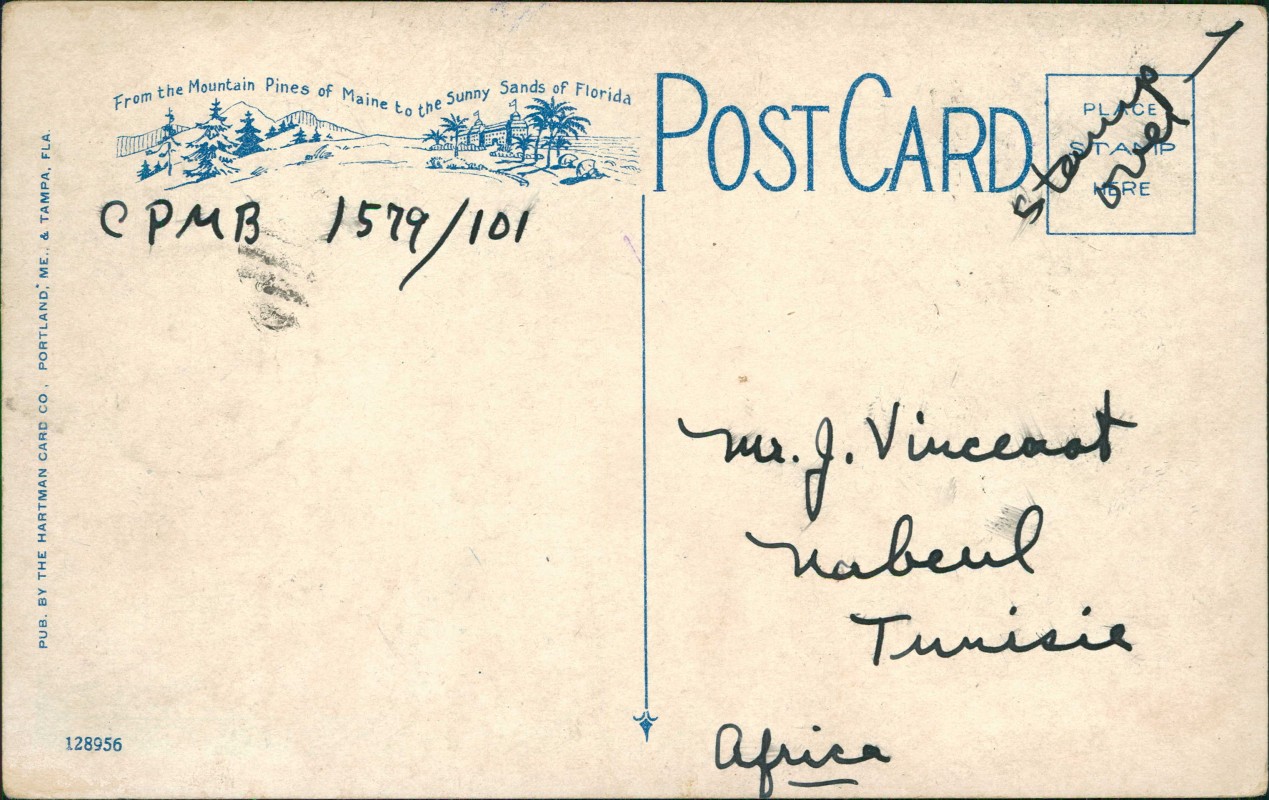 From the Mountain Pines of Maine to the Sunny Sands of Florida
POST CARD
PLACE
STAMP
HERE
Stamp
over
CPMB 1579/101
Mr. J. Vincenot
Nabeul
Tunisie
Africa
PUB. BY THE HARTMAN CARD CO., PORTLAND, ME., & TAMPA, FLA.
128956